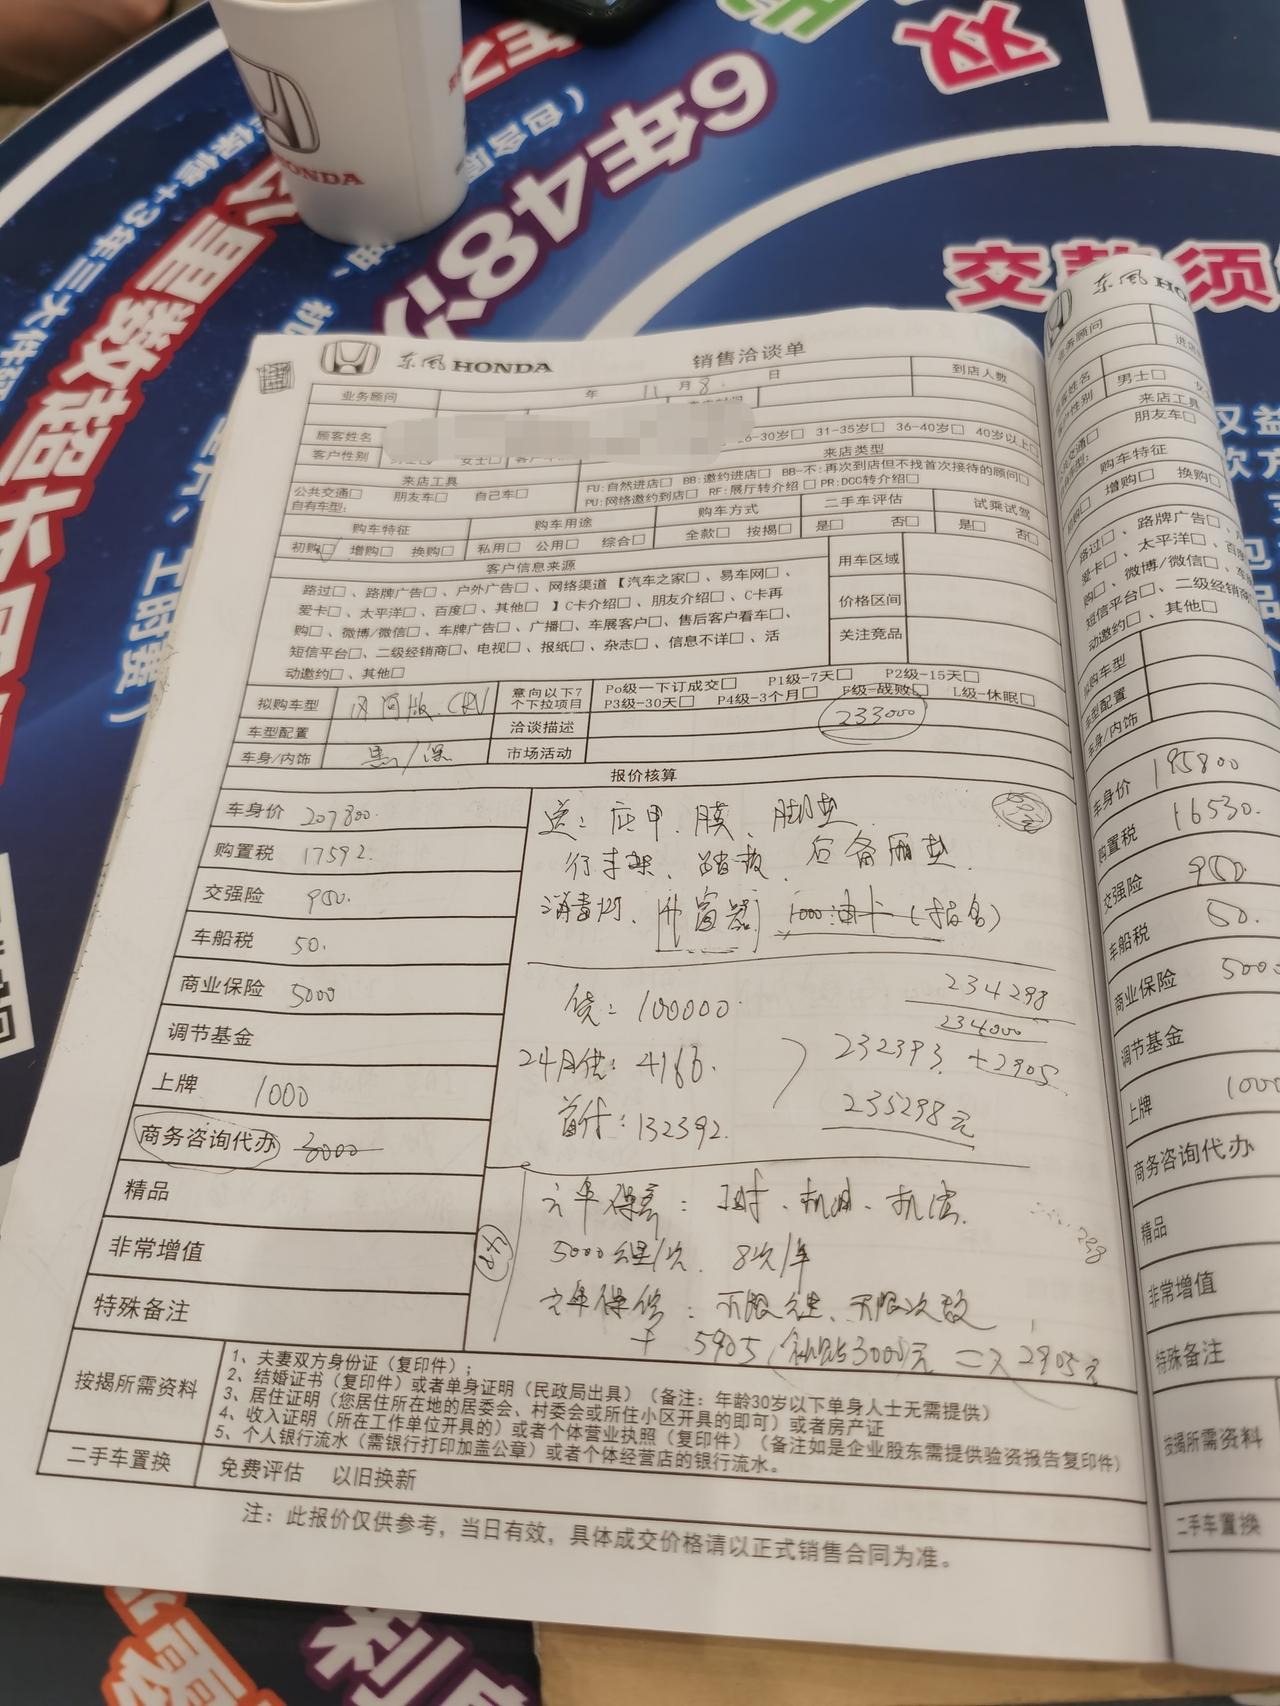 双
6年48次
公里数超长
HONDA
交 须
东风HONDA
销售洽谈单
业务顾问 年 11 月 8 日 到店人数
顾客姓名 26-30岁□ 31-35岁□ 36-40岁□ 40岁以上□
客户性别 女士□ 来店类型
来店工具 FU:自然进店□ BB:邀约进店□ BB-不:再次到店但不找首次接待的顾问□
公共交通□ 朋友车□ 自己车□ PU:网络邀约到店□ RF:展厅转介绍□ PR:DCC转介绍□
自有车型:
购车特征 购车用途 购车方式 二手车评估 试乘试驾
初购□ 增购□ 换购□ 私用□ 公用□ 综合□ 全款□ 按揭□ 是□ 否□ 是□ 否□
客户信息来源 用车区域
路过□、路牌广告□、户外广告□、网络渠道【汽车之家□、易车网□、
爱卡□、太平洋□、百度□、其他□ 】C卡介绍□、朋友介绍□、C卡再 价格区间
购□、微博/微信□、车牌广告□、广播□、车展客户□、售后客户看车□、
短信平台□、二级经销商□、电视□、报纸□、杂志□、信息不详□、活 关注竞品
动邀约□、其他□
拟购车型 CRV 意向以下7个下拉项目 Po级一下订成交□ P1级-7天□ P2级-15天□
P3级-30天□ P4级-3个月□ F级-战败□ L级-休眠□
车型配置 洽谈描述 233000
车身/内饰 黑/深 市场活动
报价核算
车身价 207800.
购置税 17592.
交强险 950.
车船税 50.
商业保险 5000
调节基金
上牌 1000
商务咨询代办 3000
精品
非常增值
特殊备注
送：底甲、膜、脚垫
行李架、踏板、后备厢垫
消毒灯、升窗器 1000油卡（报名）
贷：100000. 234298
234000
24月供：4166. 232393 +2905
首付：132392. 235298元
六年保养：工时、机油、机滤.
5000公里/次、8次/年
48
六年保修：不限公里、不限次数
+ 5905 补贴3000元 => 2905元
按揭所需资料
1、夫妻双方身份证（复印件）；
2、结婚证书（复印件）或者单身证明（民政局出具）（备注：年龄30岁以下单身人士无需提供）
3、居住证明（您居住所在地的居委会、村委会或所住小区开具的即可）或者房产证
4、收入证明（所在工作单位开具的）或者个体营业执照（复印件）（备注如是企业股东需提供验资报告复印件）
5、个人银行流水（需银行打印加盖公章）或者个体经营店的银行流水。
二手车置换 免费评估 以旧换新
注：此报价仅供参考，当日有效，具体成交价格请以正式销售合同为准。
东风HO
业务顾问
男士□
来店工具
朋友车□
购车特征
增购□ 换购□
路过□、路牌广告□、
爱卡□、太平洋□、
购□、微博/微信□、
短信平台□、二级经销商
动邀约□、其他□
拟购车型
车型配置
车身/内饰
车身价 185800
购置税 16530.
交强险 950.
车船税 50.
商业保险 5000
调节基金
上牌 1000
商务咨询代办
精品
非常增值
特殊备注
按揭所需资料
二手车置换